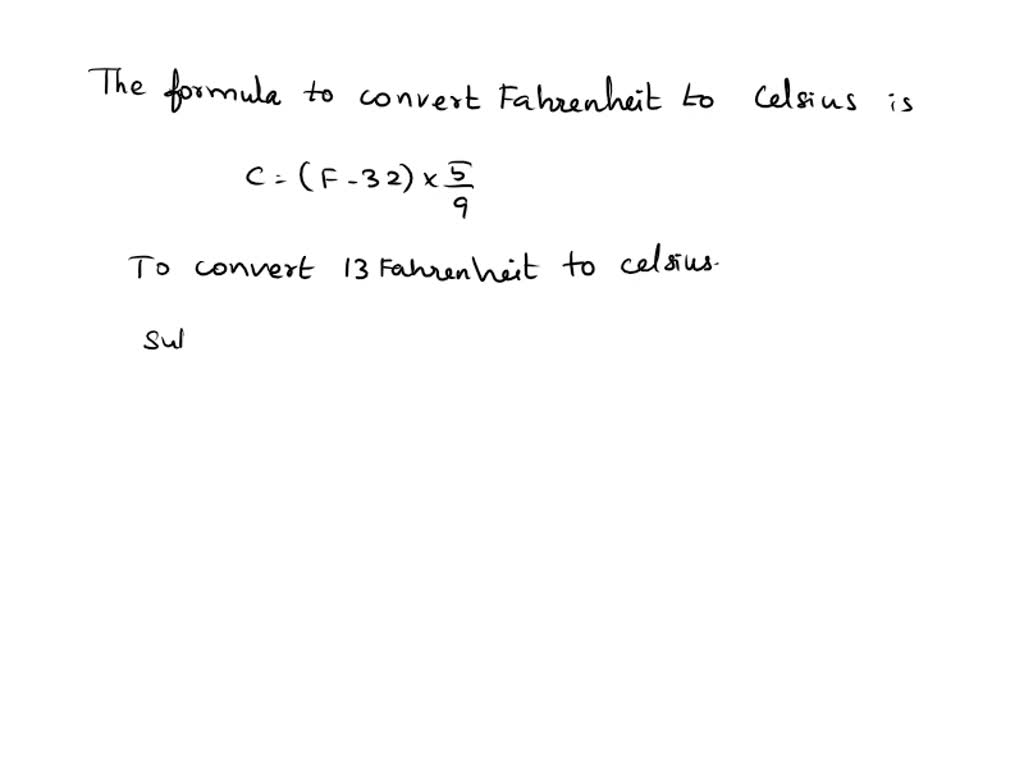 The formula to convert Fahrenheit to Celsius is
C = (F - 32) × 5/9
To convert 13 Fahrenheit to celsius.
Sul